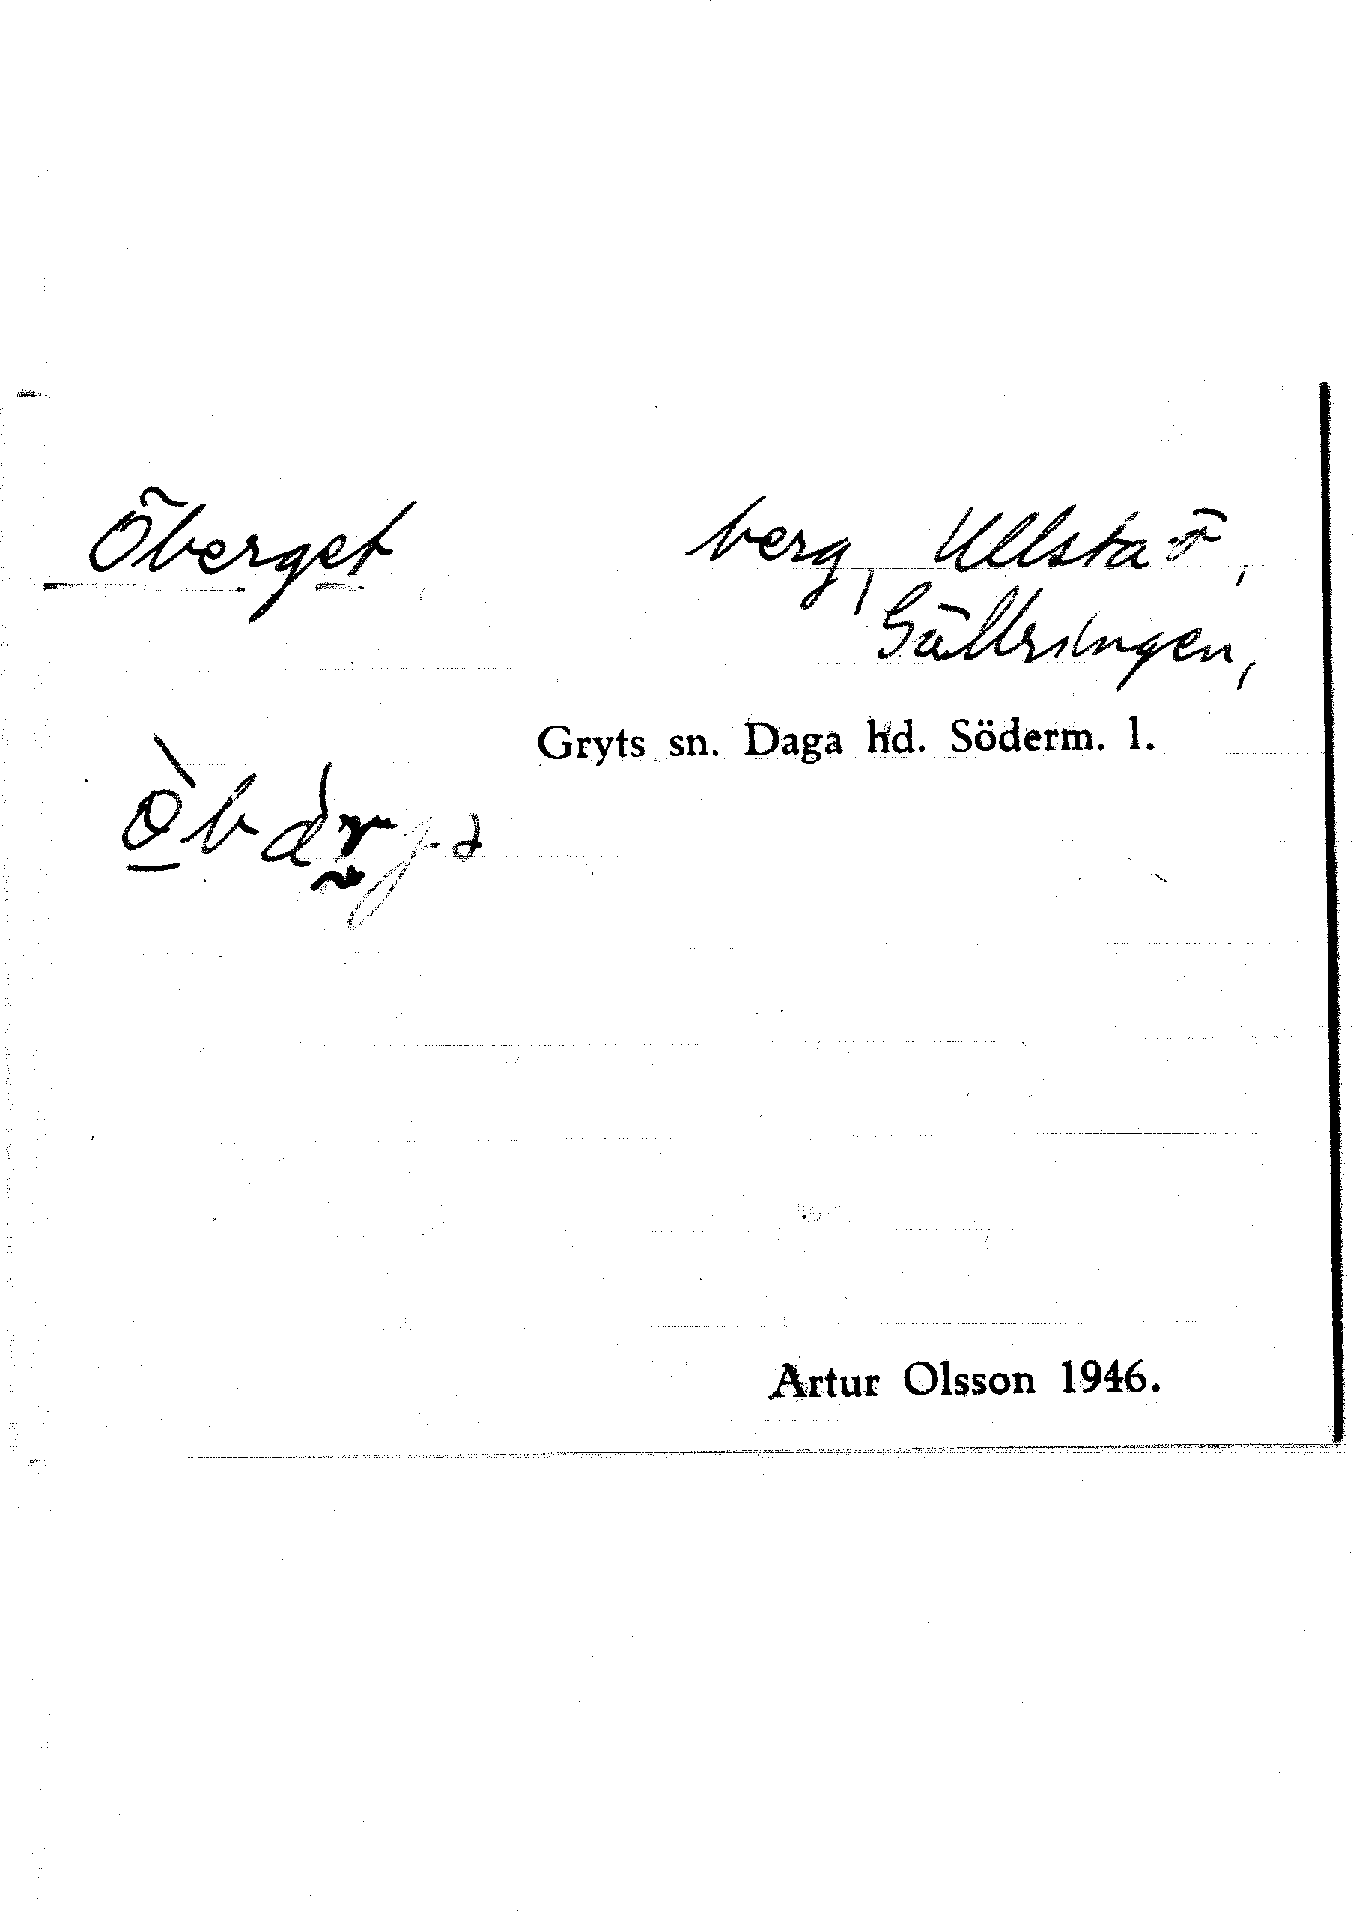 Öberget berg, Ullsta ö,
Gällringen,
Gryts sn. Daga hd. Söderm. l.
Artur Olsson 1946.